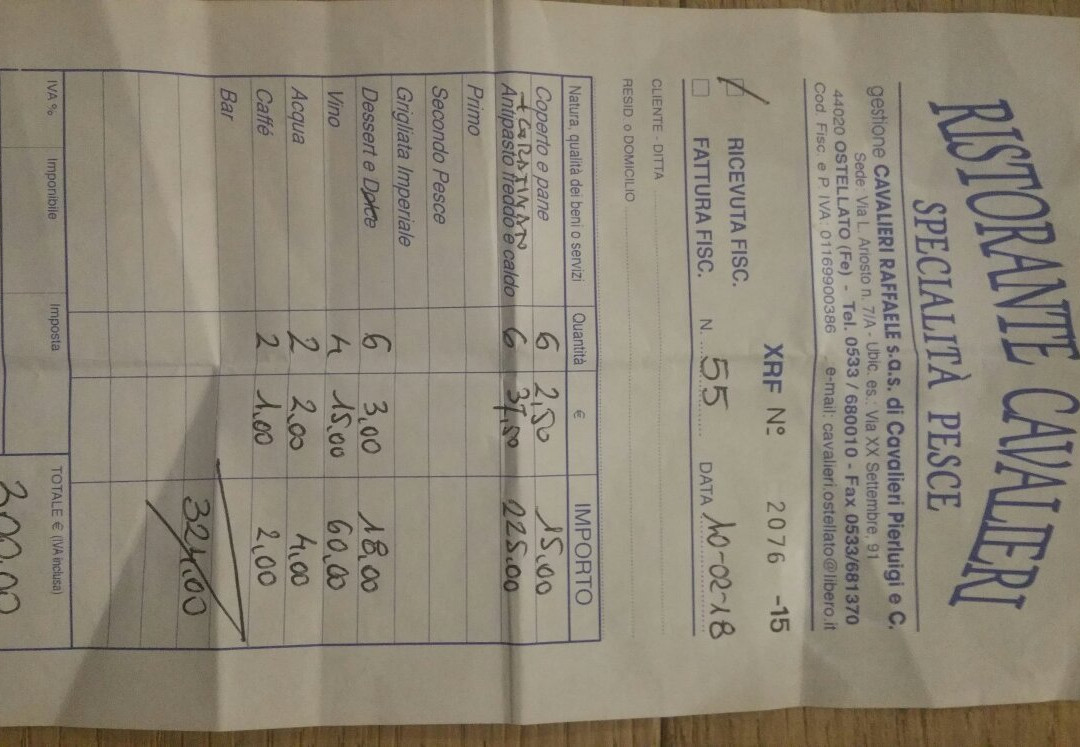 RISTORANTE CAVALIERI
SPECIALITÀ PESCE
gestione CAVALIERI RAFFAELE s.a.s. di Cavalieri Pierluigi e C.
Sede: Via L. Ariosto n. 7/A - Ubic. es.: Via XX Settembre, 91
44020 OSTELLATO (Fe) - Tel. 0533 / 680010 - Fax 0533/681370
Cod. Fisc. e P. IVA: 01169900386 e-mail: cavalieri.ostellato@libero.it
XRF N° 2076 -15
RICEVUTA FISC.
FATTURA FISC. N. 55 DATA 10-02-18
CLIENTE - DITTA
RESID. o DOMICILIO
Natura, qualità dei beni o servizi Quantità € IMPORTO
Coperto e pane 6 2,50 15,00
Antipasto freddo e caldo 6 37,50 225,00
Primo
Secondo Pesce
Grigliata Imperiale
Dessert e Dolce 6 3,00 18,00
Vino 4 15,00 60,00
Acqua 2 2,00 4,00
Caffé 2 1,00 2,00
Bar
324,00
IVA % Imponibile Imposta TOTALE € (IVA inclusa)
300,00